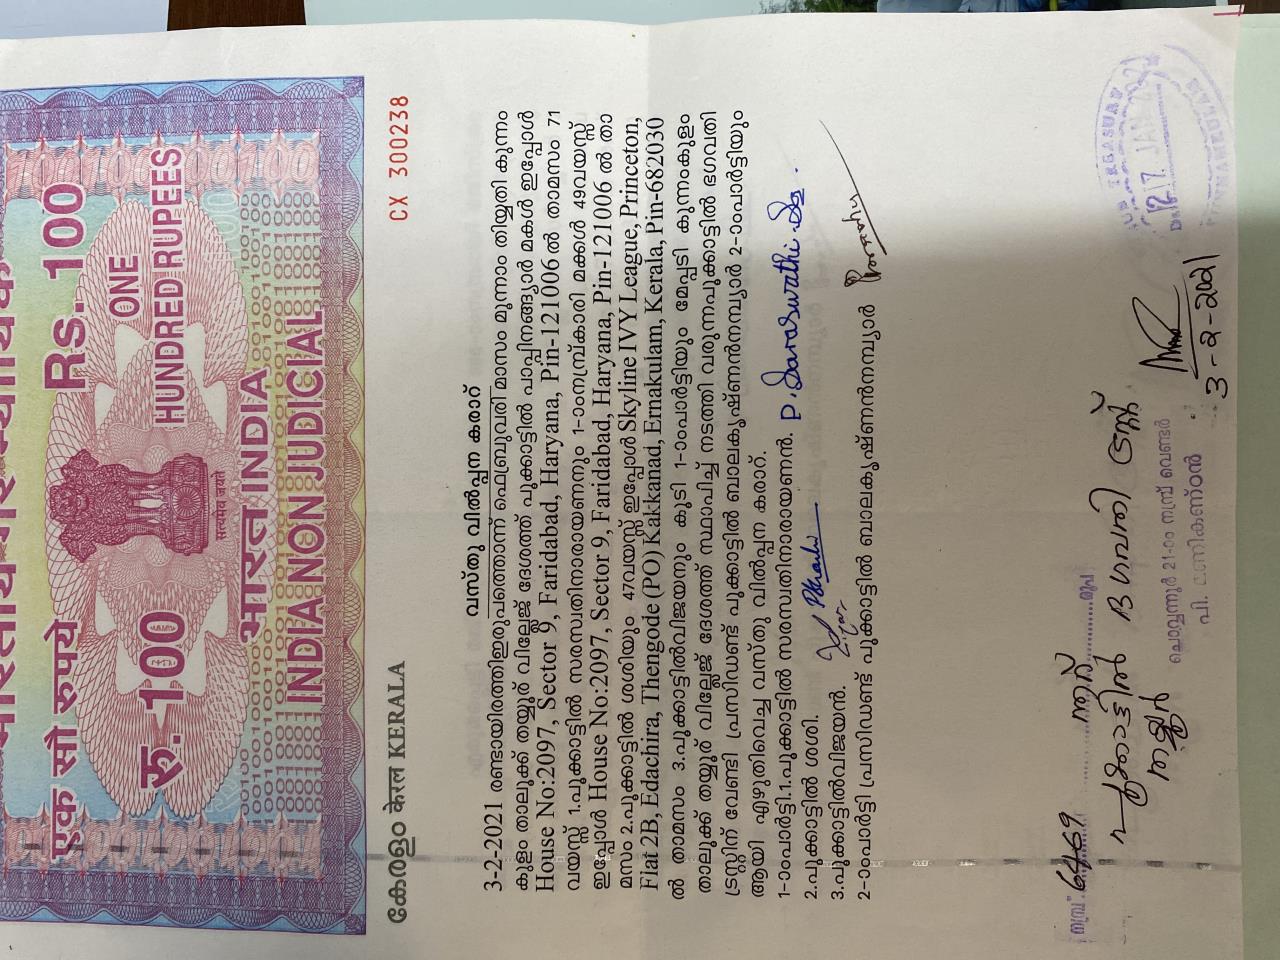 भारतीय गैर न्यायिक
एक सौ रुपये
Rs. 100
रु. 100
ONE
HUNDRED RUPEES
सत्यमेव जयते
भारत INDIA
INDIA NON JUDICIAL
കേരളം केरल KERALA
CX 300238
വസ്തു വിൽപ്പന കരാറ്
3-2-2021 രണ്ടായിരത്തിഇരുപത്തൊന്ന് ഫെബ്രുവരി മാസം മൂന്നാം തിയ്യതി കുന്നം
കുളം താലൂക്ക് തയ്യൂർ വില്ലേജ് ദേശത്ത് പൂക്കാട്ടിൽ പാപ്പിനങ്ങ്യാർ മകൾ ഇപ്പോൾ
House No:2097, Sector 9, Faridabad, Haryana, Pin-121006 ൽ താമസം 71
വയസ്സ് 1.പൂക്കാട്ടിൽ സരസ്വതിനാരായണനും 1-ാംനമ്പ്കാരി മക്കൾ 49വയസ്സ്
ഇപ്പോൾ House No:2097, Sector 9, Faridabad, Haryana, Pin-121006 ൽ താ
മസം 2.പൂക്കാട്ടിൽ ശശിയും 47വയസ്സ് ഇപ്പോൾ Skyline IVY League, Princeton,
Flat 2B, Edachira, Thengode (PO) Kakkanad, Ernakulam, Kerala, Pin-682030
ൽ താമസം 3.പൂക്കാട്ടിൽവിജയനും കൂടി 1-ാംപാർട്ടിയും മേപ്പടി കുന്നംകുളം
താലൂക്ക് തയ്യൂർ വില്ലേജ് ദേശത്ത് സ്ഥാപിച്ച് നടത്തി വരുന്നപൂക്കാട്ടിൽ ഭഗവതി
ട്രസ്റ്റിന് വേണ്ടി പ്രസിഡണ്ട് പൂക്കാട്ടിൽ ബാലകൃഷ്ണൻനമ്പ്യാർ 2-ാംപാർട്ടിയും
ആയി എഴുതിവെച്ച വസ്തു വിൽപ്പന കരാറ്.
1-ാംപാർട്ടി.1.പൂക്കാട്ടിൽ സരസ്വതിനാരായണൻ. P. Saraswathi
2.പൂക്കാട്ടിൽ ശശി.
3.പൂക്കാട്ടിൽവിജയൻ.
2-ാംപാർട്ടി പ്രസിഡണ്ട് പൂക്കാട്ടിൽ ബാലകൃഷ്ണൻനമ്പ്യാർ
SUB TREASURY
27 JAN 2021
നമ്പ്ര് 6469
പൂക്കാട്ടിൽ ഭഗവതി ട്രസ്റ്റ്
തയ്യൂർ
3-2-2021
ചൊവ്വന്നൂർ 21-ാം നമ്പ് വെണ്ടർ
വി. മണികണ്ഠൻ